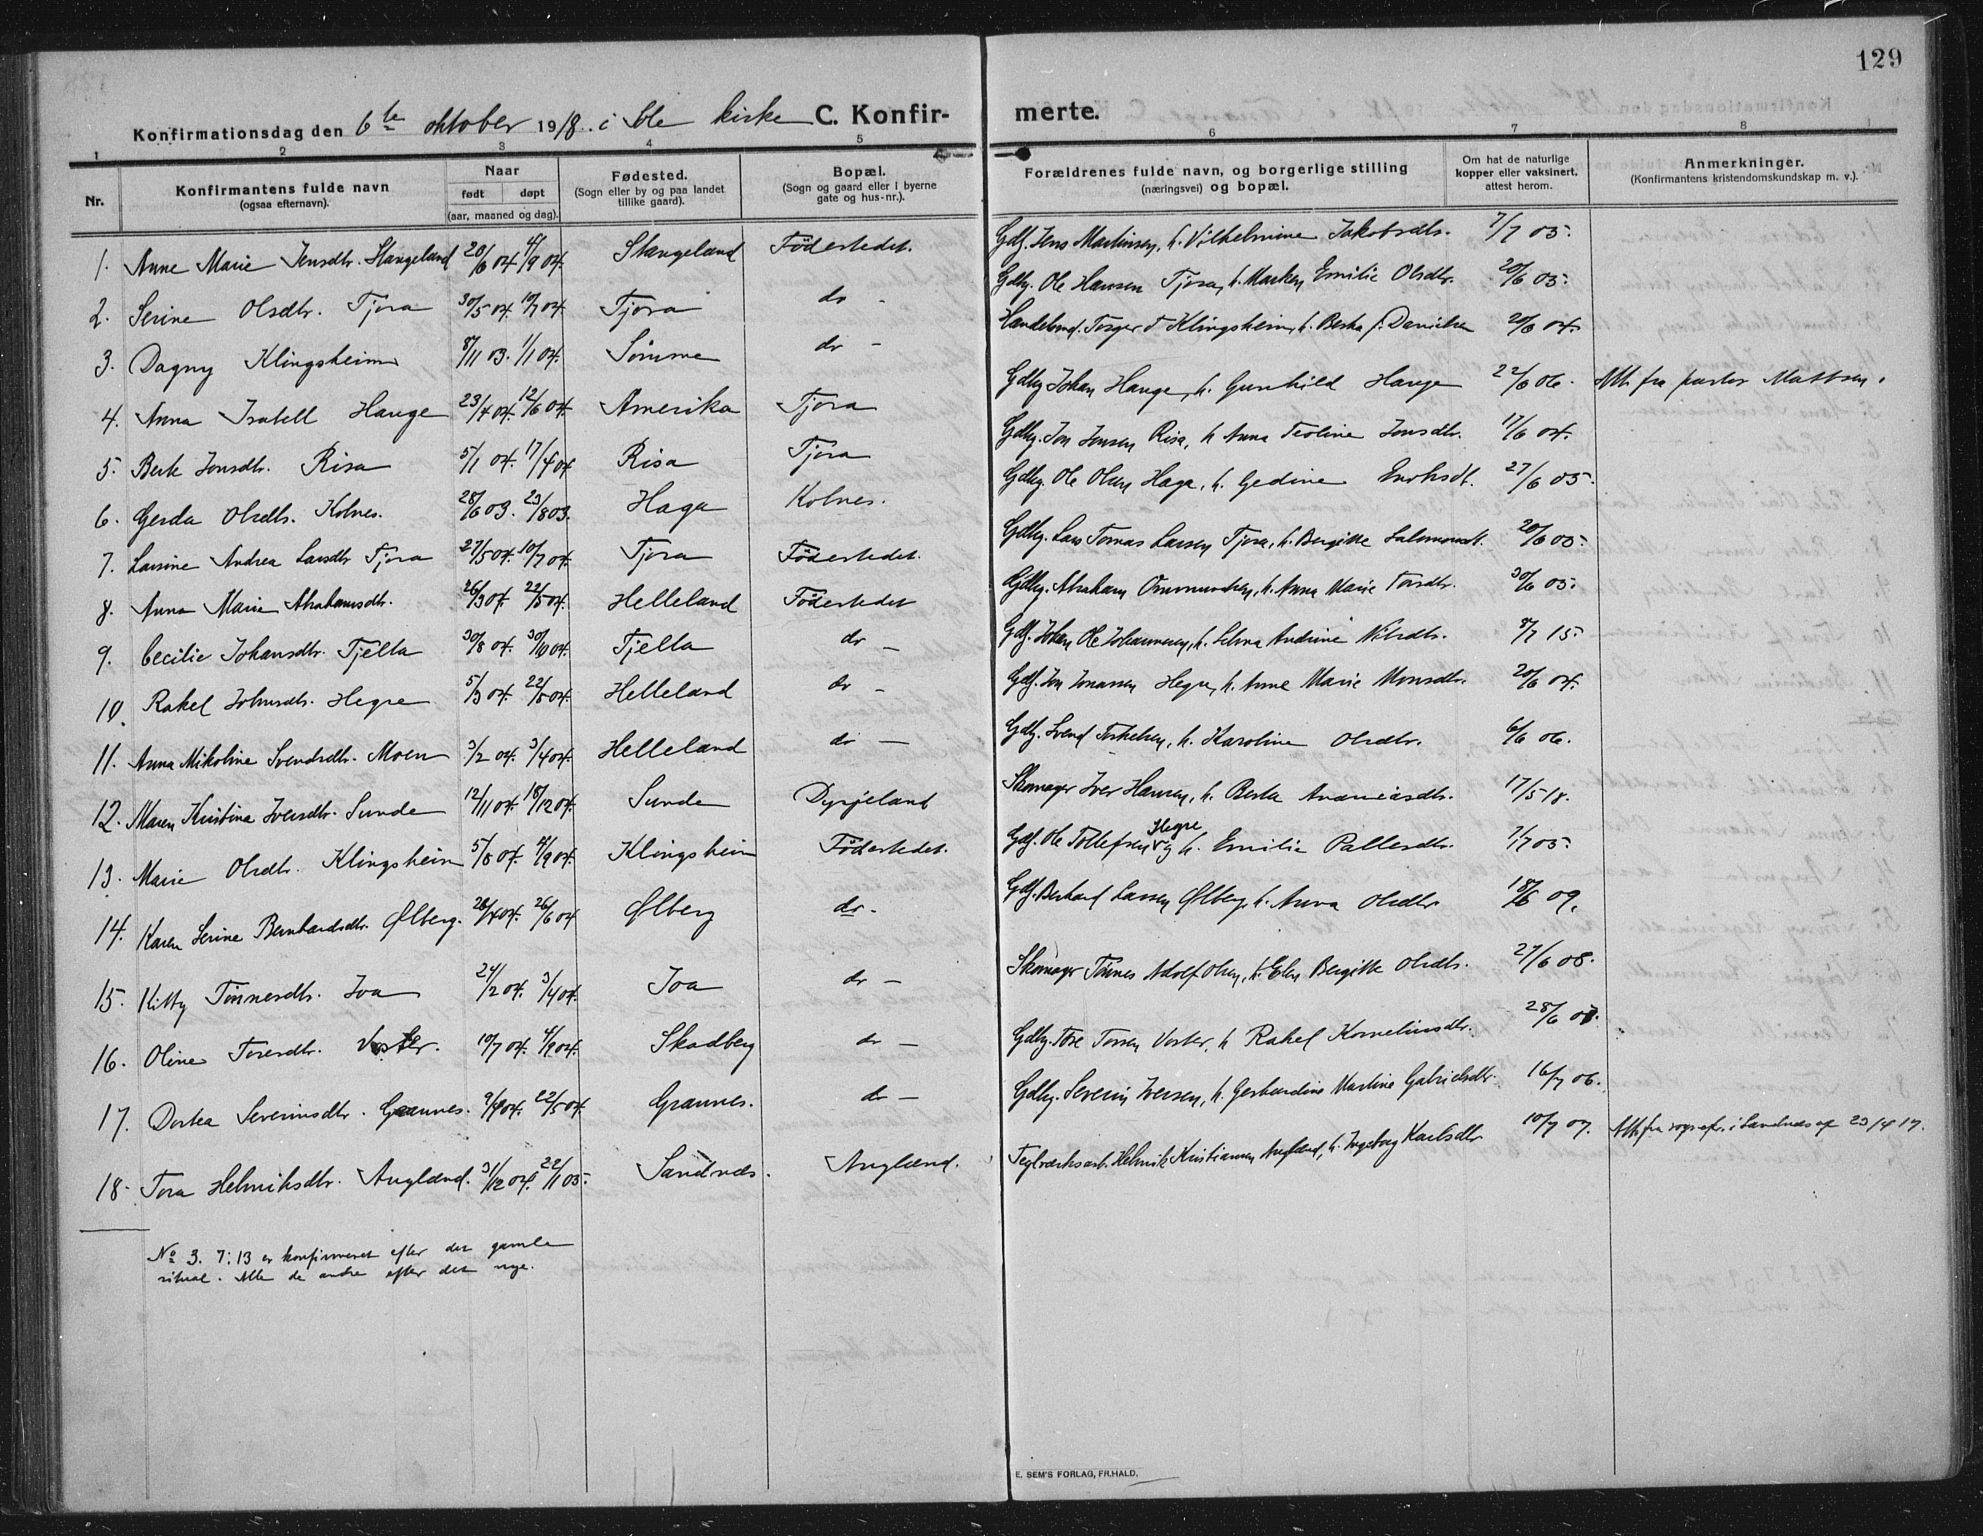 129
Konfirmationsdag den 6te oktober 1918. i Sole kirke C. Konfirmerte.
1 2 3 4 5 6 7 8
Nr.
Konfirmantens fulde navn
(ogsaa efternavn).
Naar
født døpt
(aar, maaned og dag).
Fødested.
(Sogn eller by og paa landet
tillike gaard).
Bopæl.
(Sogn og gaard eller i byerne
gate og hus-nr.).
Forældrenes fulde navn, og borgerlige stilling
(næringsvei) og bopæl.
Om hat de naturlige
kopper eller vaksinert,
attest herom.
Anmerkninger.
(Konfirmantens kristendomskundskap m. v.).
1. Anne Marie Jensdtr. Stangeland 20/6 04 4/9 04. Stangeland Födestedet. Gdbr. Jens Martinsen, h. Vilhelmine Jakobsdtr. 7/7 05.
2. Serine Olsdtr. Tjora 30/5 04. 10/7 04. Tjora do - Gdbr. Ole Hansen Tjora, h. Marken Emilie Olsdtr. 20/6 05.
3. Dagny Klingsheim 8/11 03. 1/1 04. Sømme do - Handelsmd. Torger T Klingsheim, h. Berta f. Danielsen 20/6 04.
4. Anna Isabell Hauge 23/4 04. 12/6 04. Amerika Tjora Gdbr. Johan Hauge, h. Gunhild Hauge 22/6 06. Att. fra pastor Mattsen.
5. Berte Jonsdtr. Risa 5/1 04. 17/4 04 Risa Tjora Gdbr. Jon Jonsen Risa, h. Anna Teoline Jonsdtr. 17/6 04.
6. Gerda Olsdtr. Kolnes. 28/6 03. 23/8 03. Haga Kolnes. Gdbr. Ole Olsen Haga, h. Gedine Enoksdt. 27/6 05.
7. Larsine Andrea Larsdtr Tjora 27/5 04. 10/7 04. Tjora Födestedet. Gdbr. Lars Tomas Larsen Tjora, h. Bergitte Salomonsdt. 20/6 05.
8. Anna Marie Abrahamsdtr. 26/3 04. 22/5 04. Helleland Födestedet Gdbr. Abraham Ommundsen, h. Anna Marie Torsdtr. 30/6 05.
9. Cecilie Johansdtr. Tjella 30/8 04. 30/10 04. Tjella do - Gdbr. Johan Ole Johannesen, h. Selma Andrine Nilsdtr. 8/7 15.
10. Rakel Johnsdtr. Hegre 5/3 04. 22/5 04. Helleland do - Gdbr. Jon Jonassen Hegre, h. Anne Marie Monsdtr. 20/6 04.
11. Anna Mikoline Svendsdtr. Moen 3/2 04. 3/4 04. Helleland do - Gdbr. Svend Torkelsen, h. Karoline Olsdtr. 6/6 06.
12. Maren Kristina Iversdtr. Sunde 12/11 04. 18/12 04. Sunde Dysjeland Skomager Iver Hansen, h. Berta Andreasdtr. 17/5 18.
13. Marie Olsdtr. Klingsheim 5/8 04. 4/9 04. Klingsheim Födestedet. Gdbr. Ole Tollefsen Hegre og h. Emilie Pallesdtr. 7/7 05.
14. Karen Serine Bernhardsdtr. Ølberg. 28/4 04. 26/6 04 Ølberg do. Gdbr. Berhard Larsen Ølberg, h. Anna Olsdtr. 18/6 09.
15. Kitty Tønnesdtr. Joa 24/12 04. 3/4 04. Joa do - Skomager Tønnes Adolf Olsen, h. Elen Bergitte Olsdtr. 27/6 08.
16. Oline Toresdtr. Voster. 10/7 04. 4/9 04. Skadberg do - Gdbr. Tore Torsen Voster, h Rakel Korneliusdtr. 28/6 07.
17. Dortea Severinsdtr. Grannes. 9/4 04. 22/5 04. Grannes. do - Gdbr. Severin Iversen, h. Gerhardine Martine Gabrielsdtr. 16/7 06.
18. Tora Helmiksdtr. Anglænd. 31/12 04. 22/1 05. Sandnæs. Anglænd. Teglverksarb. Helmik Kristiansen Anglænd, h. Ingeborg Karlsdtr 10/7 07. Att. fra sogneprs. i Sandnæs af 23/4 17.
No 3. 7. 13 er konfirmeret efter det gamle
ritual. Alle de andre efter det nye.
E. SEM'S FORLAG, FR.HALD.